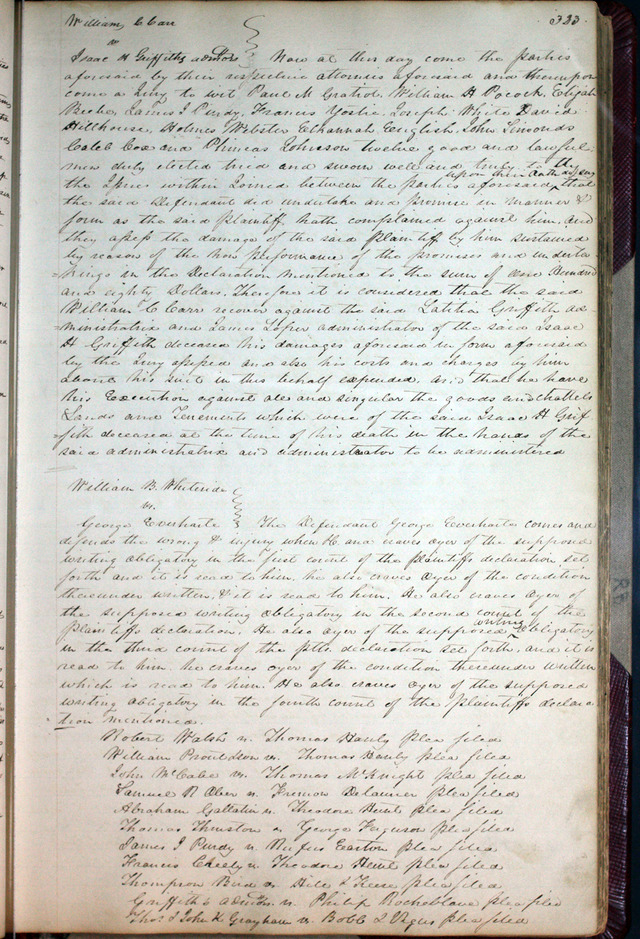 William C Carr 323
vs
Isaac H Griffiths admrs Now at this day come the parties
aforesaid by their respective attornies aforesaid and thereupon
come a Jury to wit Paul M Gratiot, William H Pocock, Elijah
Beebe, James J Purdy, Francis Yostie, Joseph White, David
Hillhouse, Holmes Webster Elkannah English, John Simonds
Caleb Cox and Phineas Johnson twelve good and lawful
men duly elected tried and sworn well and truly to try
the Issue within Joined between the parties aforesaid upon their oath do say that
the said Defendant did undertake and promise in manner &
form as the said plaintiff hath complained against him. and
they assess the damage of the said Plaintiff by him sustained
by reason of the non performance of the promises and underta-
kings in the Declaration mentioned to the sum of one Hundred
and eighty Dollars. Therefore it is considered that the said
William C Carr recover against the said Latitia Griffith ad-
ministratrix and James administrator of the said Isaac
H Griffith deceased his damages aforesaid in form aforesaid
by the Jury assessed and also his costs and charges by him
about his suit in this behalf expended. and that he have
his Execution against all and singular the goods and chattels
Lands and Tenements which were of the said Isaac H Grif
fith deceased at the time of his death in the hands of the
said administratrix and administrator to be administered
William B. Whiteside
vs.
George Everharte The Defendant George Everharte comes and
defends the wrong & injury when &c and craves oyer of the supposed
writing obligatory in the first count of the plaintiffs declaration set
forth and it is read to him. he also craves Oyer of the condition
thereunder written, & it is read to him. He also craves Oyer of
the supposed writing obligatory in the second count of the
plaintiffs declaration. He also Oyer of the supposed writing obligatory
in the third count of the pltfs declaration set forth, and it is
read to him. he craves oyer of the condition thereunder written
which is read to him. He also craves oyer of the supposed
writing obligatory in the fourth count of the plaintiffs declara
tion mentioned.
Robert Walsh vs. Thomas Hanly plea filed
William vs. Thomas Hanly plea filed
John McCabe vs. Thomas McKnight plea filed
Samuel R Ober vs Fremon Delaurier plea filed
Abraham Gallatin vs. Theodore Hunt plea filed
Thomas Thruston vs George Ferguson plea filed
James J Purdy vs Rufus Easton plea filed
Francis vs. Theodore Hunt plea filed
Thompson Bird vs. Hill & plea filed
Griffiths admrs. vs. Philip Rocheblave plea filed
Thos & John K Grayham vs. Bobb & plea filed